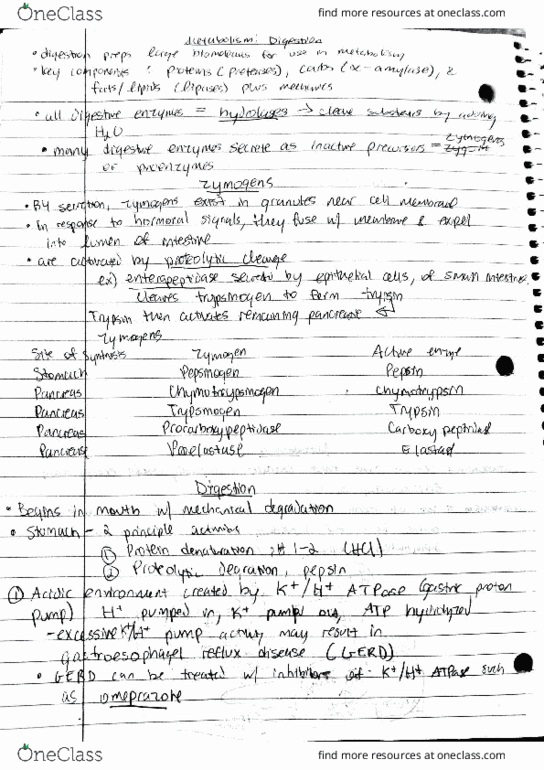 OneClass
find more resources at oneclass.com
Metabolism: Digestion
• digestion preps large biomolecules for use in metabolism
• key components: proteins (proteases), carbs (α-amylase), &
fats/lipids (lipases) plus mechanics
• all digestive enzymes = hydrolases → cleave substrates by adding
H2O
• many digestive enzymes secrete as inactive precursors = zymogens
or proenzymes
Zymogens
• B4 secretion, zymogens exist in granules near cell membrane
• In response to hormonal signals, they fuse w/ membrane & expel
into lumen of intestine
• are activated by proteolytic cleavage
ex) enteropeptidase secreted by epithelial cells, of small intestine
cleaves trypsinogen to form trypsin
Trypsin then activates remaining pancreatic
zymogens
Site of Synthesis Zymogen Active enzyme
Stomach Pepsinogen Pepsin
Pancreas Chymotrypsinogen chymotrypsin
Pancreas Trypsinogen Trypsin
Pancreas Procarboxypeptidase Carboxy peptidase
Pancreas Proelastase Elastase
Digestion
• Begins in mouth w/ mechanical degradation
• Stomach - 2 principle activities
① Protein denaturation pH 1-2 (HCl)
② Proteolytic degration, pepsin
① Acidic environment created by K+/H+ ATPase (gastric proton
pump) H+ pumped in, K+ pump out, ATP hydrolyzed
- excessive K+/H+ pump activity may result in
gastroesophagel reflux disease (GERD)
• GERD can be treated w/ inhibitors of K+/H+ ATPase such
as omeprazole
OneClass
find more resources at oneclass.com